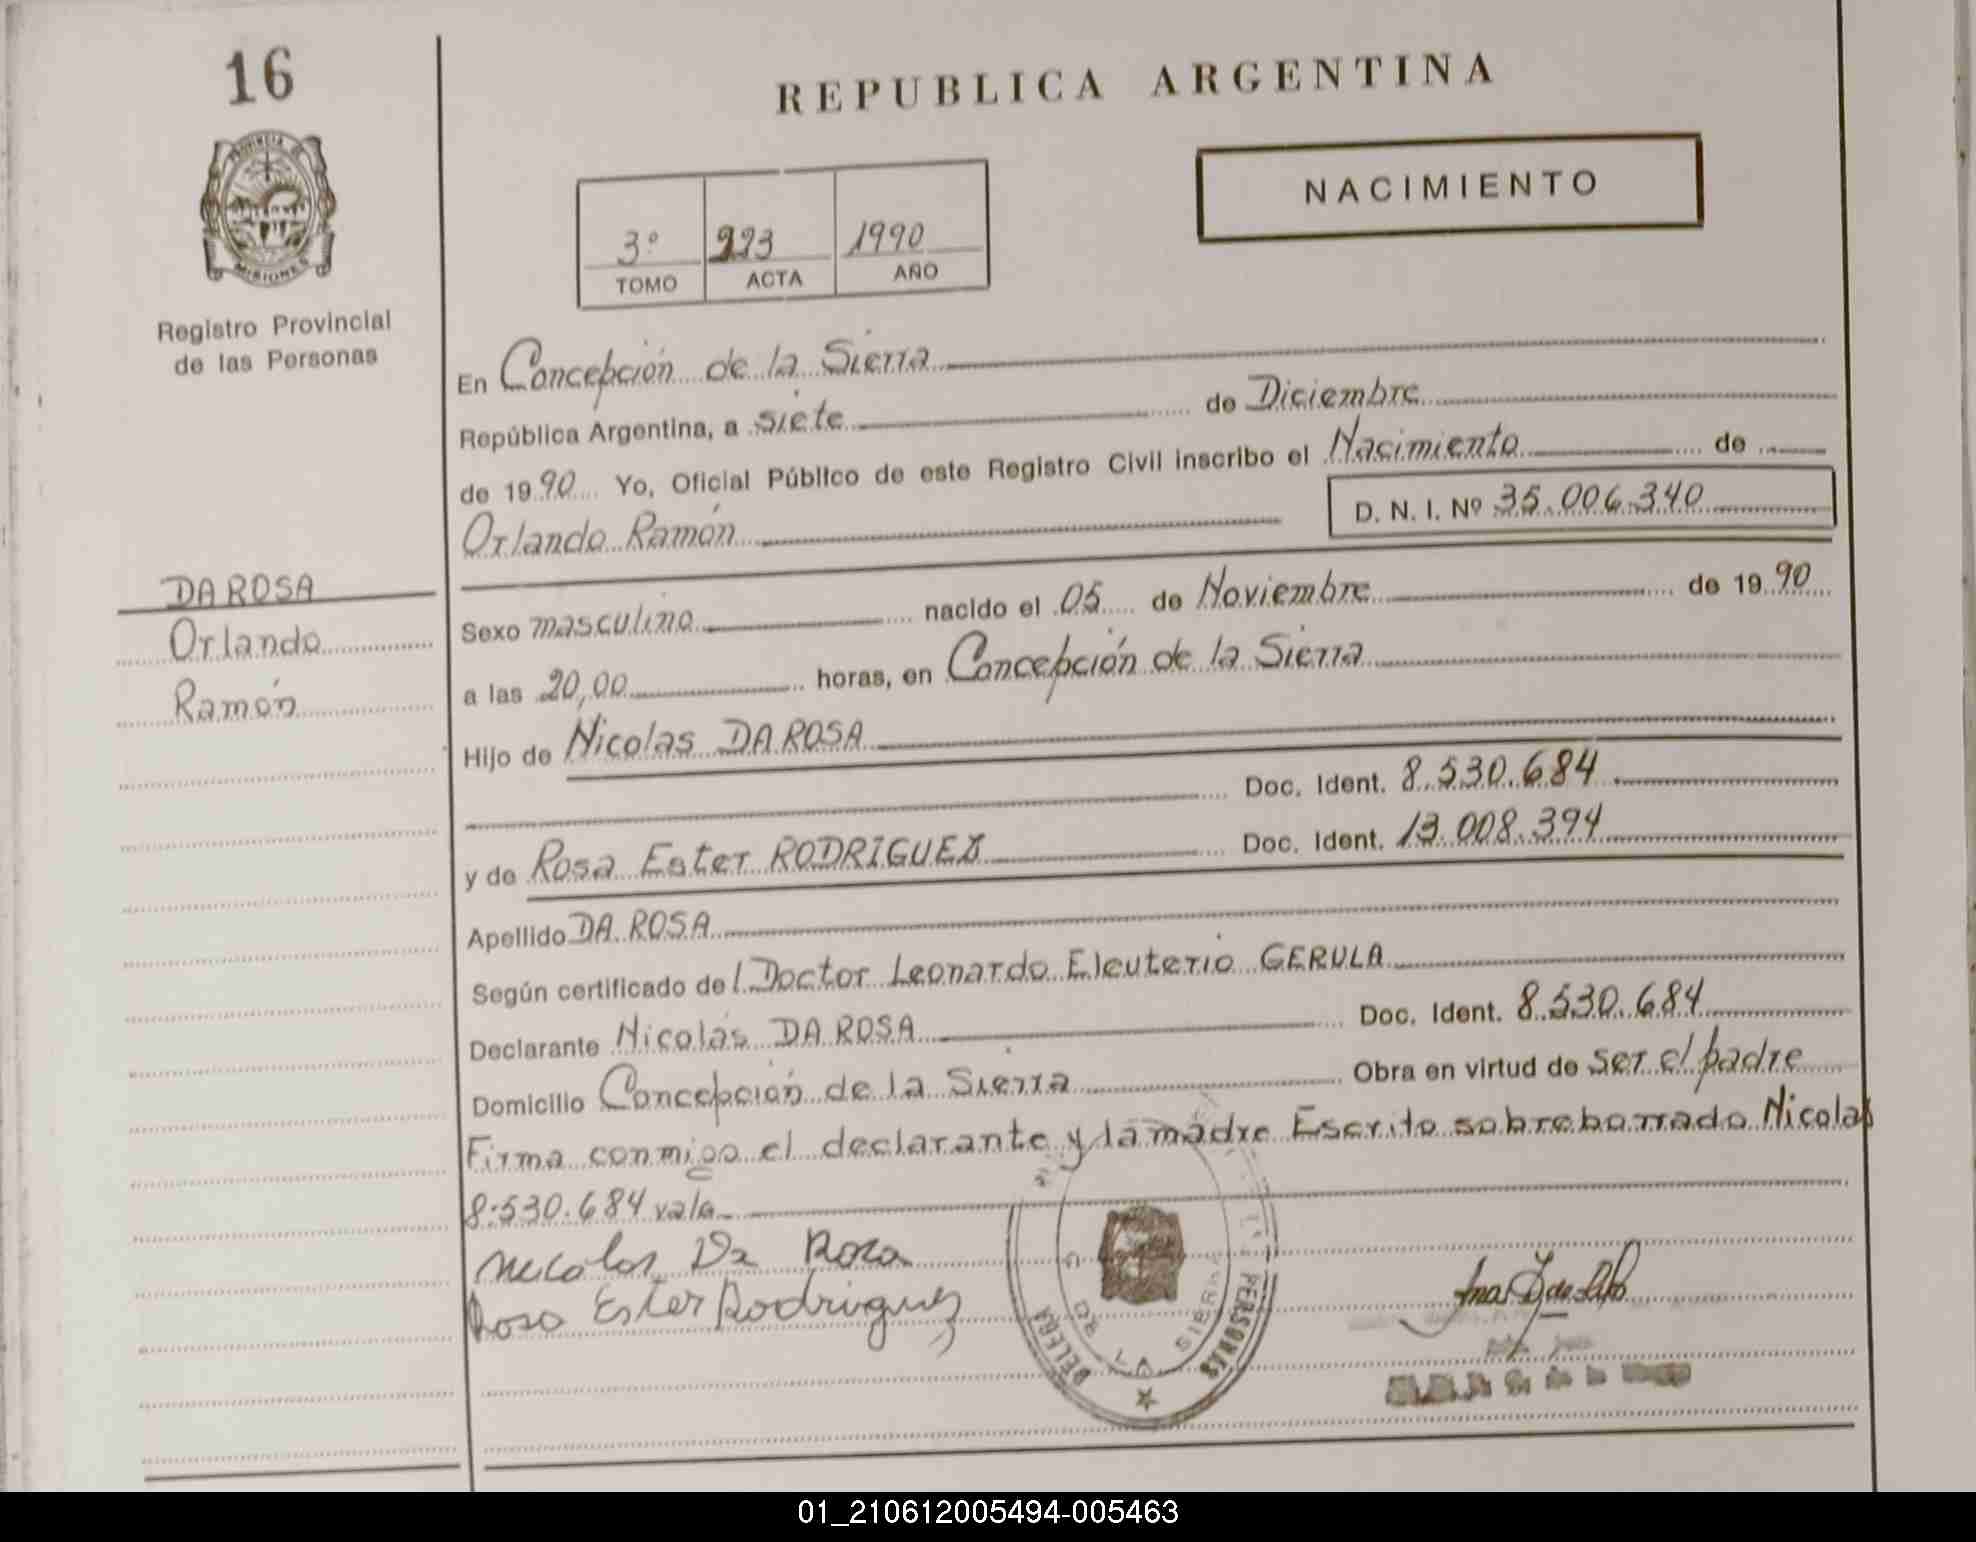 16
REPUBLICA ARGENTINA
PROVINCIA DE
MISIONES
NACIMIENTO
3º 223 1990
TOMO ACTA AÑO
Registro Provincial
de las Personas
En Concepción de la Sierra
República Argentina, a siete de Diciembre
de 1990 Yo, Oficial Público de este Registro Civil inscribo el Nacimiento de
Orlando Ramón D. N. I. Nº 35.006.340
DA ROSA
Orlando
Ramón
Sexo masculino nacido el 05 de Noviembre de 1990
a las 20,00 horas, en Concepción de la Sierra
Hijo de Nicolas DA ROSA
Doc. Ident. 8.530.684
y de Rosa Ester RODRIGUEZ Doc. Ident. 13.008.394
Apellido DA ROSA
Según certificado de l Doctor Leonardo Eleuterio GERULA
Declarante Nicolás DA ROSA Doc. Ident. 8.530.684
Domicilio Concepción de la Sierra Obra en virtud de ser el padre
Firma conmigo el declarante y la madre Escrito sobreborrado Nicolas
8.530.684 vale
Nicolas Da Rosa
Rosa Ester Rodriguez
PERSONAS
LA SIERRA
01_210612005494-005463